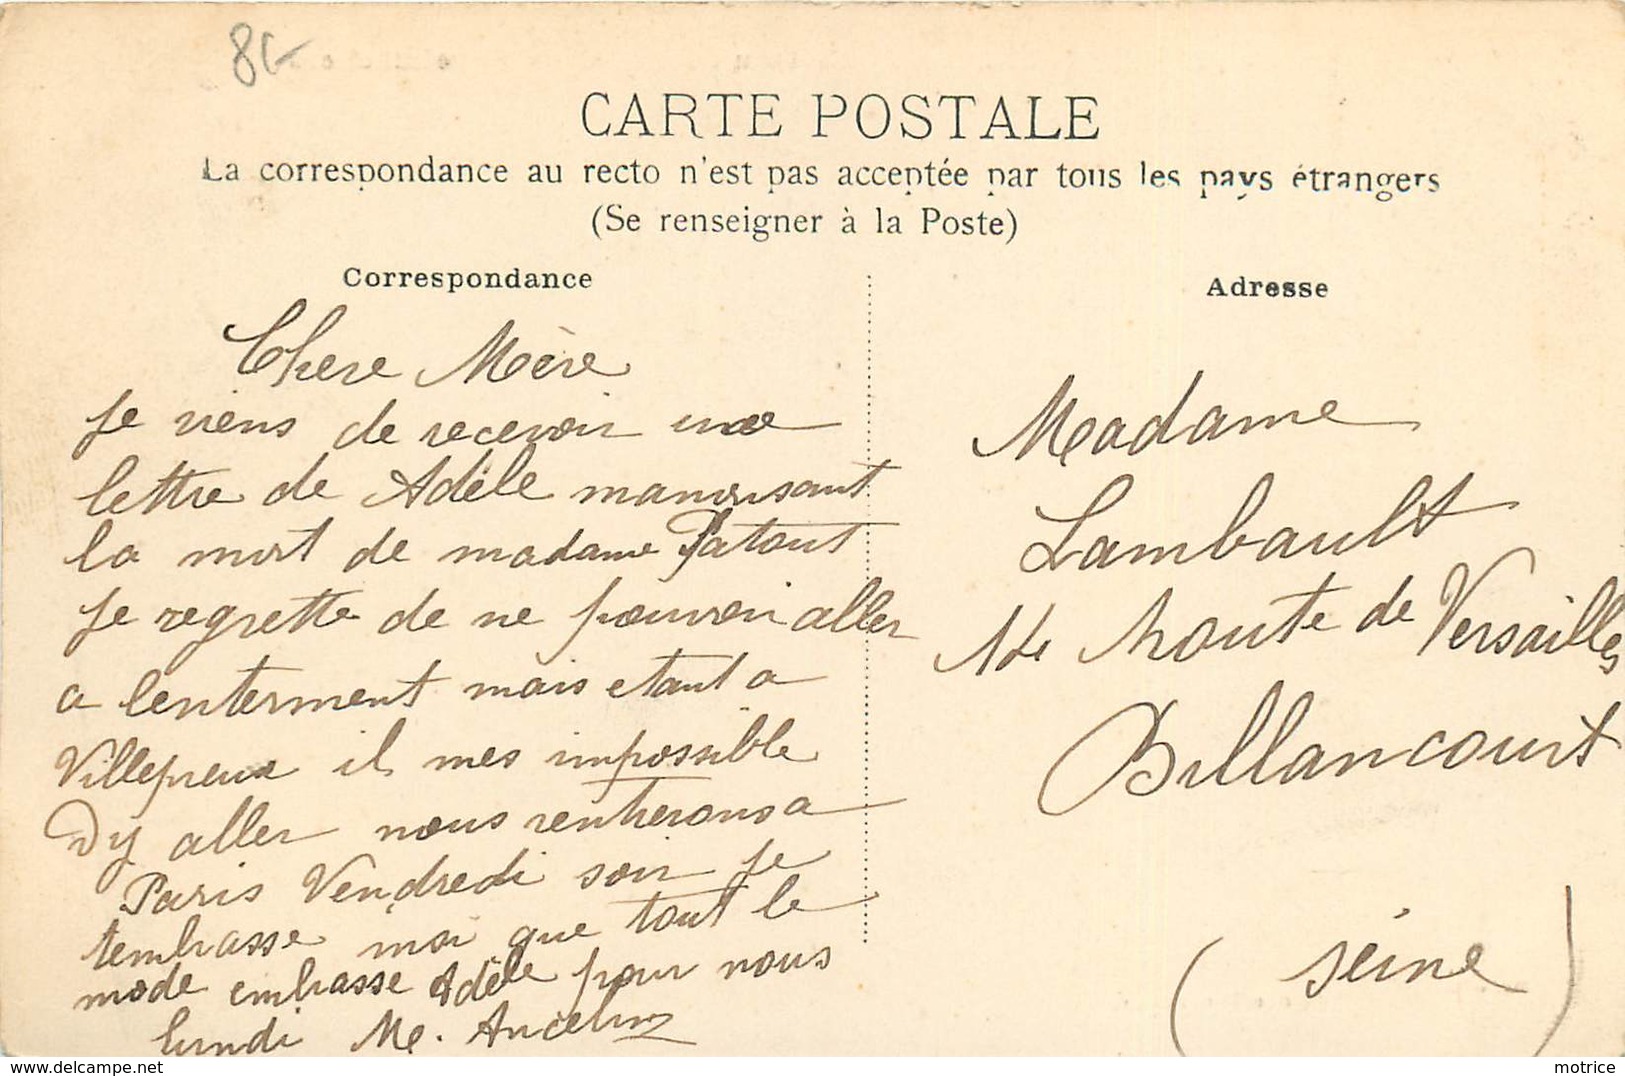 8€
CARTE POSTALE
La correspondance au recto n'est pas acceptée par tous les pays étrangers
(Se renseigner à la Poste)
Correspondance
Chere Mère
je viens de recevoir une
lettre de Adèle manonsant
la mort de madame Patout
je regrette de ne pouvoir aller
a lenterment mais etant a
Villepreux il mes impossible
Dy aller nous rentrerons a
Paris Vendredi soir je
tembrasse moi que tout le
mode embrasse Adèle pour nous
lundi Me. Ancelin
Adresse
Madame
Lambault
route de Versailles
Billancourt
(seine)
delcampe.net
motrice